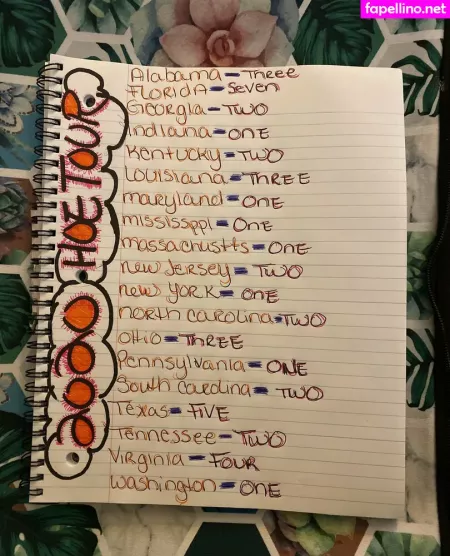 fapellino.net
2020 HOE TOUR
Alabama - THree
FLORIDA - Seven
Georgia - TWO
Indiana - ONE
Kentucky - TWO
Louisiana - THREE
maryland - ONE
mississppi - ONE
massachustts - ONE
new Jersey - TWO
new york - ONE
north carolina - TWO
OHIO - THREE
Pennsylvania - ONE
South Carolina - TWO
Texas - FIVE
Tennessee - TWO
Virginia - FOUR
washington - ONE